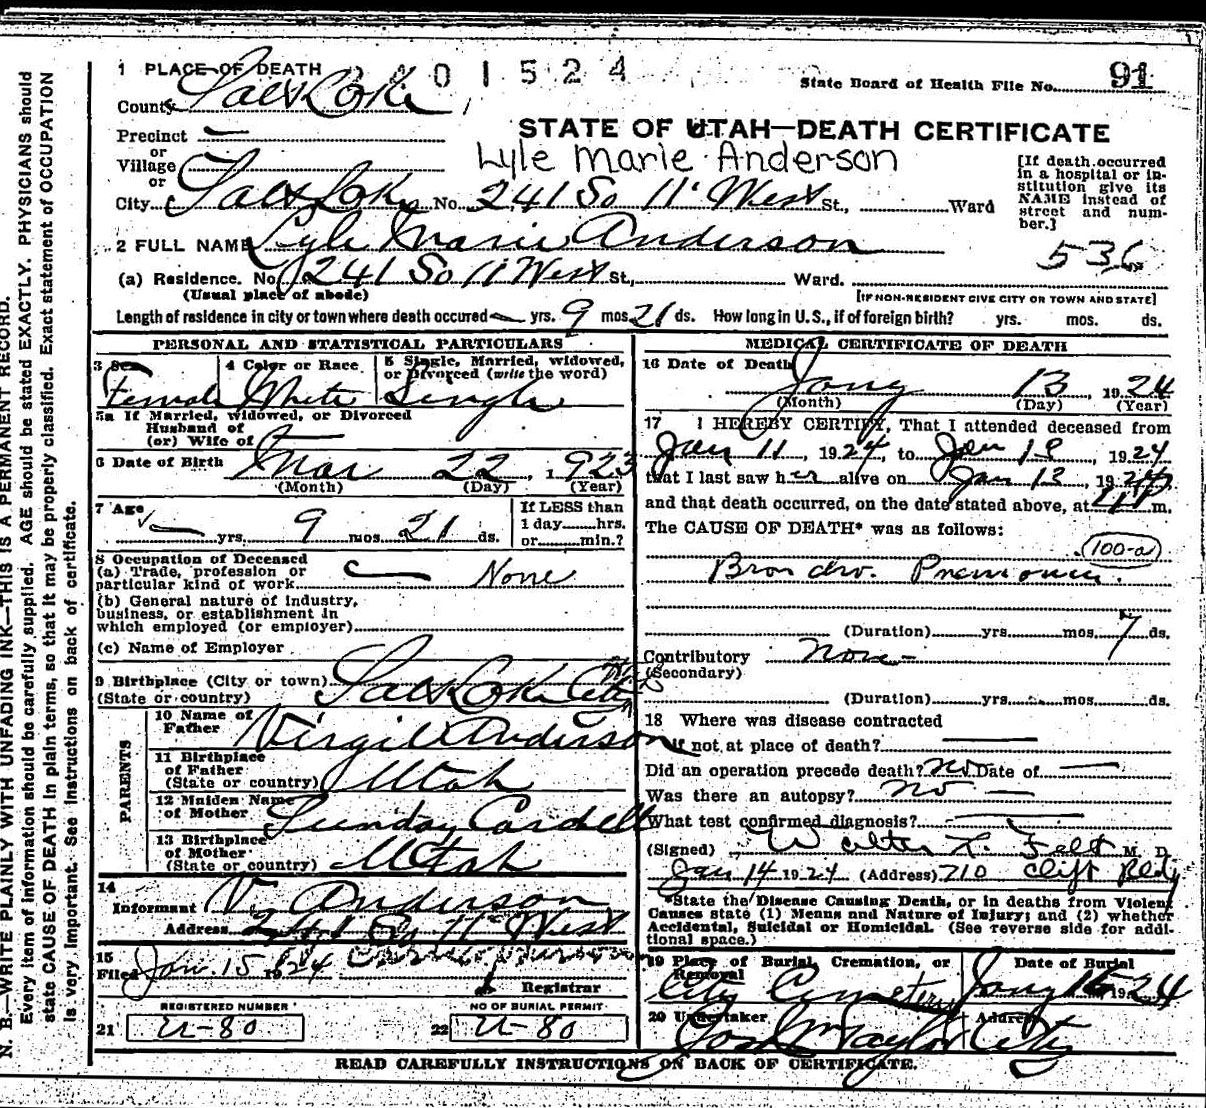 1 PLACE OF DEATH 2401524
State Board of Health File No. 91
County Salt Lake
Precinct —
or
Village
or
STATE OF UTAH—DEATH CERTIFICATE
Lyle Marie Anderson
City Salt Lake No. 241 So 11' West St., Ward
[If death occurred
in a hospital or in-
stitution give its
NAME instead of
street and num-
ber.]
2 FULL NAME Lyle Marie Anderson
536
(a) Residence. No. 241 So 11 West St., Ward.
(Usual place of abode)
[IF NON-RESIDENT GIVE CITY OR TOWN AND STATE]
Length of residence in city or town where death occured — yrs. 9 mos. 21 ds. How long in U. S., if of foreign birth? yrs. mos. ds.
PERSONAL AND STATISTICAL PARTICULARS
3 Sex Female
4 Color or Race White
5 Single, Married, widowed,
or Divorced (write the word)
Single
5a If Married, widowed, or Divorced
Husband of
(or) Wife of —
6 Date of Birth Mar 22, 1923
(Month) (Day) (Year)
7 Age — yrs. 9 mos. 21 ds.
If LESS than
1 day......hrs.
or......min.?
8 Occupation of Deceased
(a) Trade, profession or
particular kind of work None
(b) General nature of industry,
business, or establishment in
which employed (or employer)
(c) Name of Employer
9 Birthplace (City or town) Salt Lake City
(State or country)
PARENTS
10 Name of
Father Virgil Anderson
11 Birthplace
of Father
(State or country) Utah
12 Maiden Name
of Mother Cardell
13 Birthplace
of Mother
(State or country) Utah
14
Informant V. Anderson
Address 241 So 11 West
15
Filed Jan. 15 1924
Registrar
REGISTERED NUMBER
21 U-80
NO OF BURIAL PERMIT
22 U-80
MEDICAL CERTIFICATE OF DEATH
16 Date of Death Jany 13, 1924
(Month) (Day) (Year)
17 I HEREBY CERTIFY, That I attended deceased from
Jan 11, 1924, to Jan 13, 1924
that I last saw her alive on Jan 13, 1924
and that death occurred, on the date stated above, at m.
The CAUSE OF DEATH* was as follows:
100-a
Broncho. Pneumonia.
(Duration) yrs. mos. 7 ds.
Contributory None
(Secondary)
(Duration) yrs. mos. ds.
18 Where was disease contracted
if not at place of death? —
Did an operation precede death? no Date of —
Was there an autopsy? no —
What test confirmed diagnosis? —
(Signed) Walter L. Felt M. D.
Jan 14 1924 (Address) 710 Clift Bldg
*State the Disease Causing Death, or in deaths from Violent
Causes state (1) Menus and Nature of Injury; and (2) whether
Accidental, Suicidal or Homicidal. (See reverse side for addi-
tional space.)
19 Place of Burial, Cremation, or
Removal
City Cemetery
Date of Burial
Jany 16 1924
20 Undertaker
Jos Wm Taylor
Address
City
READ CAREFULLY INSTRUCTIONS ON BACK OF CERTIFICATE.
N. B.—WRITE PLAINLY WITH UNFADING INK—THIS IS A PERMANENT RECORD.
Every item of information should be carefully supplied. AGE should be stated EXACTLY. PHYSICIANS should
state CAUSE OF DEATH in plain terms, so that it may be properly classified. Exact statement of OCCUPATION
is very important. See instructions on back of certificate.